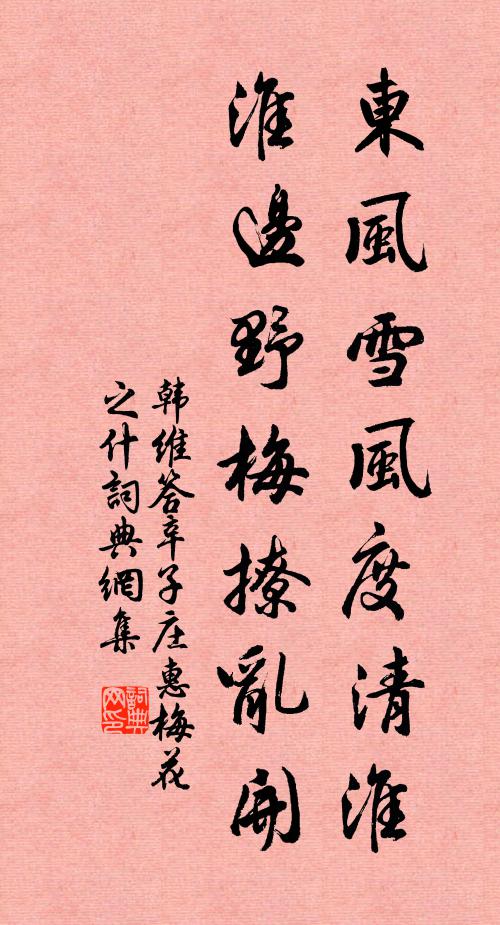 東風雪風度清淮
淮邊野梅撩亂開
韩維答辛子庄惠梅花
之什詞典網集
詞典
网印